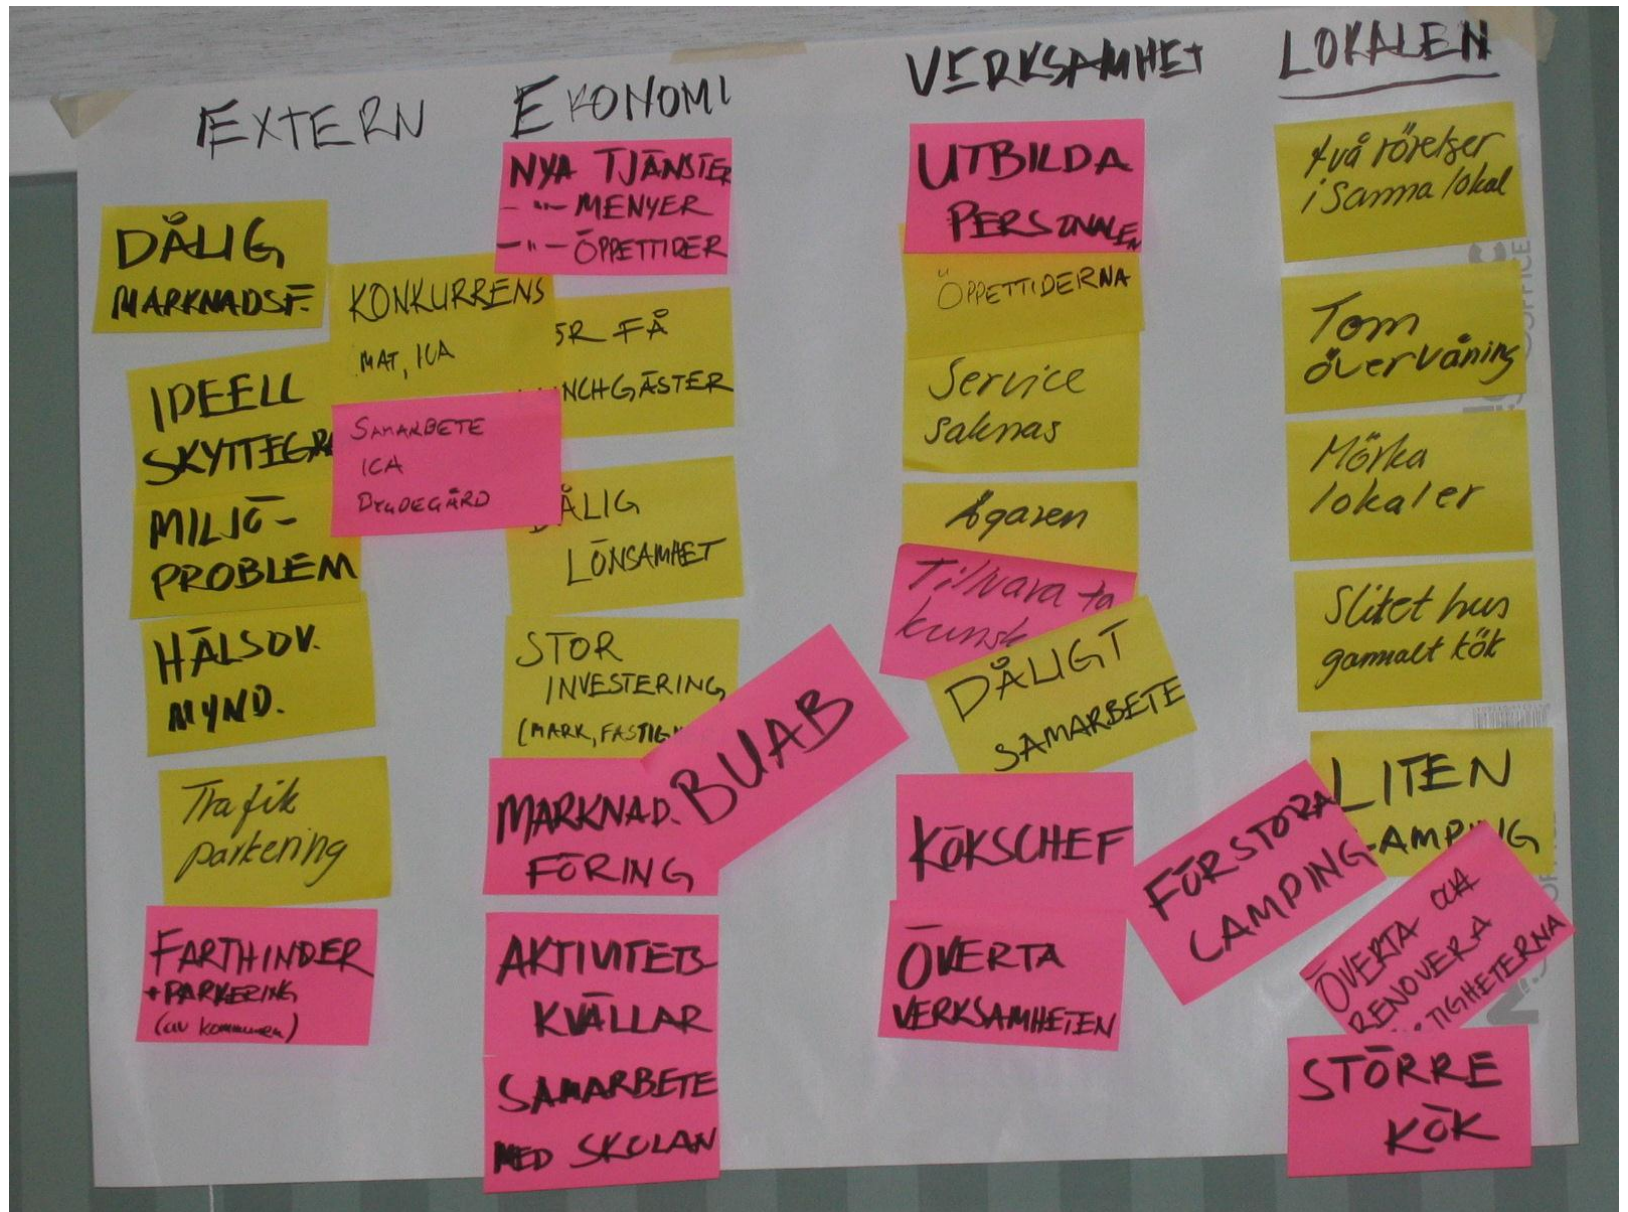 EXTERN
DÅLIG
MARKNADSF.
KONKURRENS
MAT, ICA
IDEELL
SKYTTEGR
SAMARBETE
ICA
BYGDEGÅRD
MILJÖ-
PROBLEM
HÄLSOV.
MYND.
Trafik
parkering
FARTHINDER
+ PARKERING
(av kommunen)
EKONOMI
NYA TJÄNSTER
- " - MENYER
- " - ÖPPETTIDER
FÅ
NCHGÄSTER
DÅLIG
LÖNSAMHET
STOR
INVESTERING
(MARK, FASTIG
BUAB
MARKNAD.
FÖRING
AKTIVITETS-
KVÄLLAR
SAMARBETE
MED SKOLAN
VERKSAMHET
UTBILDA
PERSONALEN
ÖPPETTIDERNA
Service
saknas
Ägaren
Tillvara ta
kunsk
DÅLIGT
SAMARBETE
KÖKSCHEF
ÖVERTA
VERKSAMHETEN
LOKALEN
två rörelser
i samma lokal
Tom
övervåning
Mörka
lokaler
Slitet hus
gammalt kök
LITEN
CAMPING
FÖRSTORA
CAMPING
ÖVERTA OCH
RENOVERA
TIGHETERNA
STÖRRE
KÖK